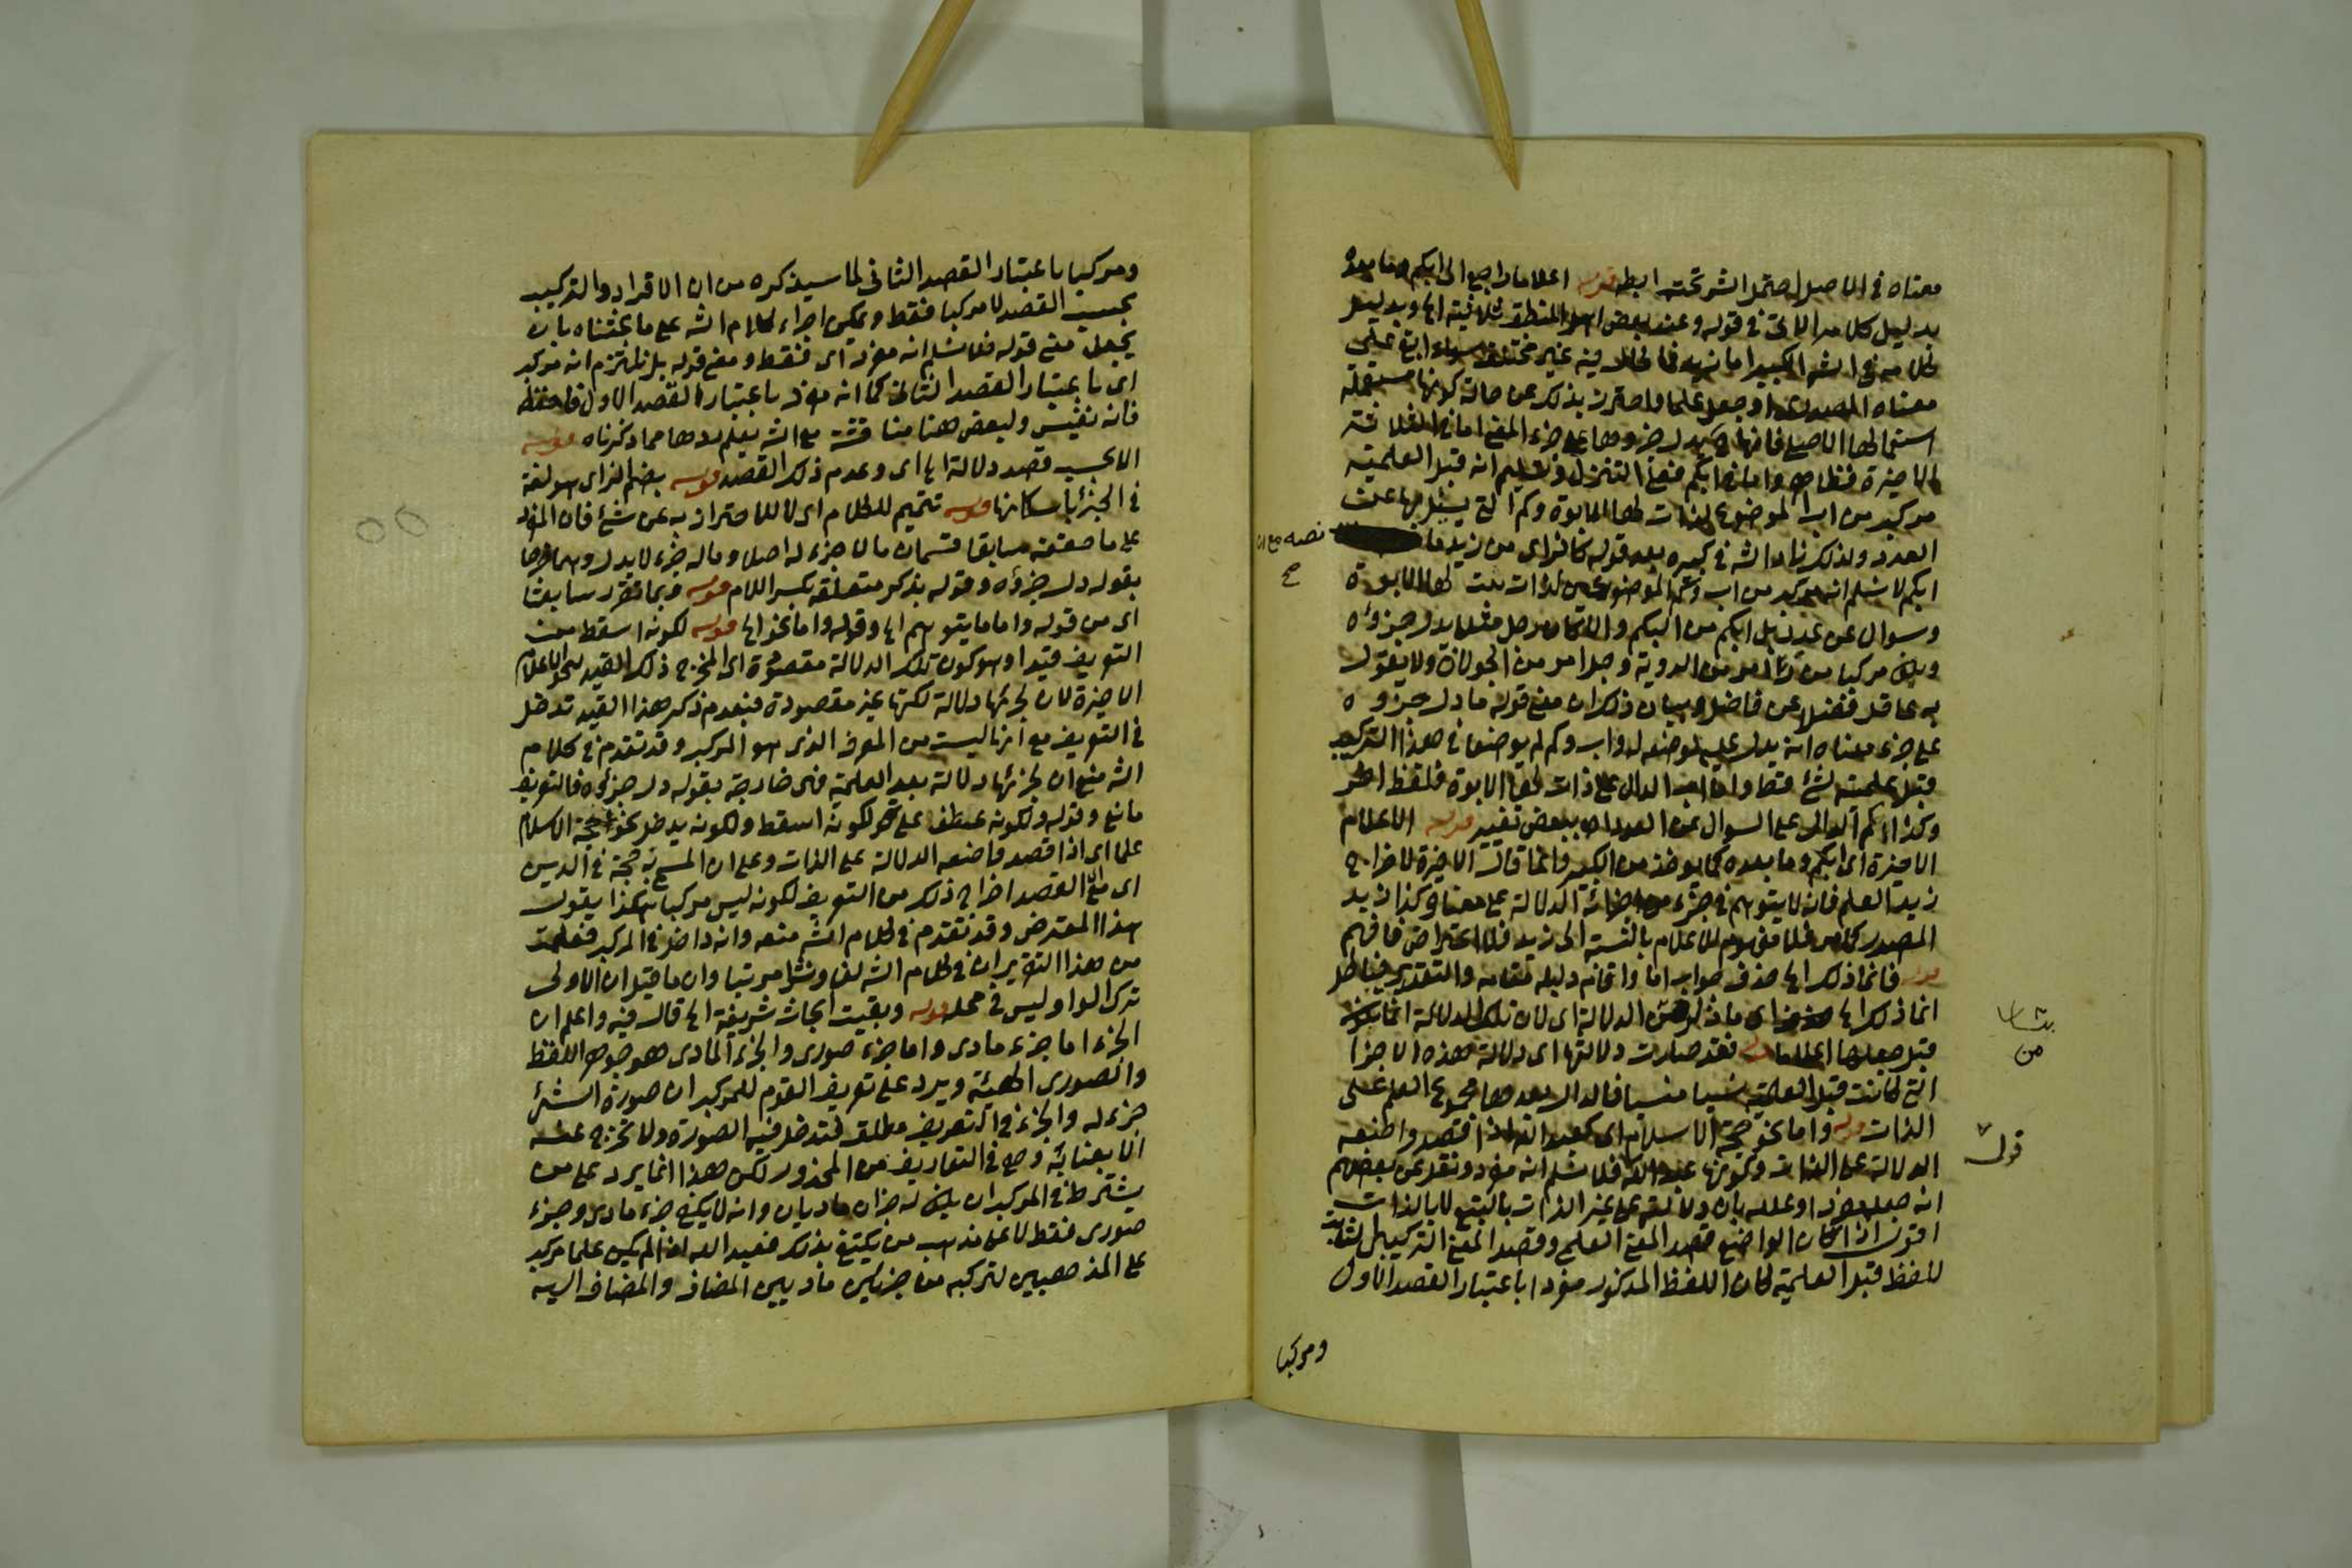 معناه في الاصل احتمل الشر تحت ابط قوله اعلاما راجع الى ابكم وما بعده
بدليل كلامه الآتي في قوله وعند بعض اهل المنطق
معناه المصدري او جعل علما واحترز بذلك عن حالة كونها مستعملة
استعمالها الاصلي فانها يدل جزوها على جزء المعنى اما في الثلاثة
الاخيرة فظاهر واما في ابكم فعلى التنزل وتسليم انه قبل العلمية
مركب من اب الموضوع لذات لها الابوة وكم التي يسئل بها عن
العدد ولذلك زاد الشه في كبيره بعد قوله كالزاى من زيد ما نصه مع ان
صح
ابكم لا نسلم انه مركب من اب وكم الموضوعين لذات ثبت لها الابوة
وسوال عن عدد بل ابكم من البكم والا كان رجل مثلا يدل جزؤه
ويكون مركبا من را امر من الروية وجل امر من الجولان ولا يقول
به عاقل فضلا عن فاضل وبيان ذلك ان معنى قوله ما دل جزوه
على جزء معناه انه يدل عليه لوضعه له واب وكم لم يوضعا في هذا التركيب
قبل علميته لشئ قط وانما اب الدال على ذات لها الابوة فلفظ اخر
وكذا كم الدال على السوال عن العدد اه ببعض تغيير قوله الاعلام
الاخيرة اى ابكم وما بعده كما يوخذ من الكبير وانما قال الاخيرة لاخراج
زيد العلم فانه لا يتوهم في جزء من اجزائه الدلالة على معنى وكذا زيد
المصدر كما مر فلا مفهوم للاعلام بالنسبة الى زيد فلا اعتراض فافهم
قوله فانما ذلك الخ حذف جواب اما واقام دليله مقامه والتقدير فباطل
انما ذلك الخ
بيان
من
قبل جعلها اعلاما قوله فقد صارت دلالتها اى دلالة هذه الاجزا
التي كانت قبل العلمية نسيا منسيا فالدال بعدها مجموع العلم على
الذات قوله واما نحو حجة الاسلام اى كعبد الله اذا قصد واضعه
قوله
الدلالة على الذات وكونها عبد الله فلا نسلم انه مفرد ونقل عن بعضهم
انه جعله مفردا وعلله بان دلالته على غير الذات بالتبع لا بالذات
اقول اذا كان الواضع قصد المعنى العلمي وقصد المعنى التركيبي الثابت
للفظ قبل العلمية كان اللفظ المذكور مفردا باعتبار القصد الاول
ومركبا
ومركبا باعتبار القصد الثاني لما سيذكره من ان الافراد والتركيب
بحسب القصد لا مركبا فقط ويمكن اجراء كلام الشه على ما بحثناه بان
يجعل معنى قوله فلا نسلم انه مفرد اى فقط ومعنى قوله بل نلتزم انه مركب
اى باعتبار القصد الثاني كما انه مفرد باعتبار القصد الاول فاحفظه
فانه نفيس ولبعض هنا مناقشة مع الشه يعلم ردها مما ذكرناه قوله
الا بحسب قصد دلالة الخ اى وعدم ذلك القصد قوله بضم الزاى هو لغة
في الجزء باسكانها قوله تتميم للكلام اى لا للاحتراز به عن شئ فان المفرد
على ما حققته سابقا قسمان ما لا جزء له اصلا وما له جزء لا يدل وهما خرجا
بقوله دل جزؤه وقوله بذكر متعلقه بكسر اللام قوله وبما تقرر سابقا
اى من قوله واما ما يتوهم الخ وقوله واما نحو الخ قوله لكونه اسقط من
التعريف قيدا وهو كون تلك الدلالة مقصودة اى المخرج ذلك القيد لنحو الاعلام
الاخيرة لان لجزئها دلالة لكنها غير مقصودة فبعدم ذكر هذا القيد تدخل
في التعريف مع انها ليست من المعرف الذى هو المركب وقد تقدم في كلام
الشه منع ان لجزئها دلالة بعد العلمية فهى خارجة بقوله دل جزؤه فالتعريف
مانع وقوله ولكونه عطف على قوله لكونه اسقط ولكونه يدخل نحو حجة الاسلام
علما اى اذا قصد واضعه الدلالة على الذات وعلى ان المسمى به حجة في الدين
اى مع ان القصد اخراج ذلك من التعريف لكونه ليس مركبا هكذا يقول
هذا المعترض وقد تقدم في كلام الشه منعه وانه داخل في المركب فعلمت
من هذا التقرير ان في كلام الشه لفا ونشرا مرتبا وان ما قيل ان الاولى
ترك الواو ليس في محله قوله وبقيت ابحاث شريفة الخ قال فيه واعلم ان
الجزء اما جزء مادى واما جزء صورى والجزء المادى هو جوهر اللفظ
والصورى الهيئة ويرد على تعريف القوم للمركب ان صورة الشئ
جزء له والجزء في التعريف مطلق فتدخل فيه الصورة ولا تخرج عنه
الا بعناية وهى في التعاريف من المحذور لكن هذا انما يرد على من
يشترط في المركب ان يكون له جزان ماديان وانه لا يكفى جزء مادى وجزء
صورى فقط لا على مذهب من يكتفى بذلك فعبد الله اذا لم يكن علما مركب
على المذهبين لتركبه من جزئين ماديين المضاف والمضاف اليه